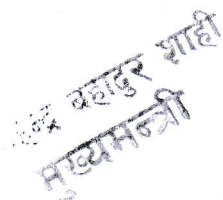 बहादुर शाही
मुख्यमन्त्री